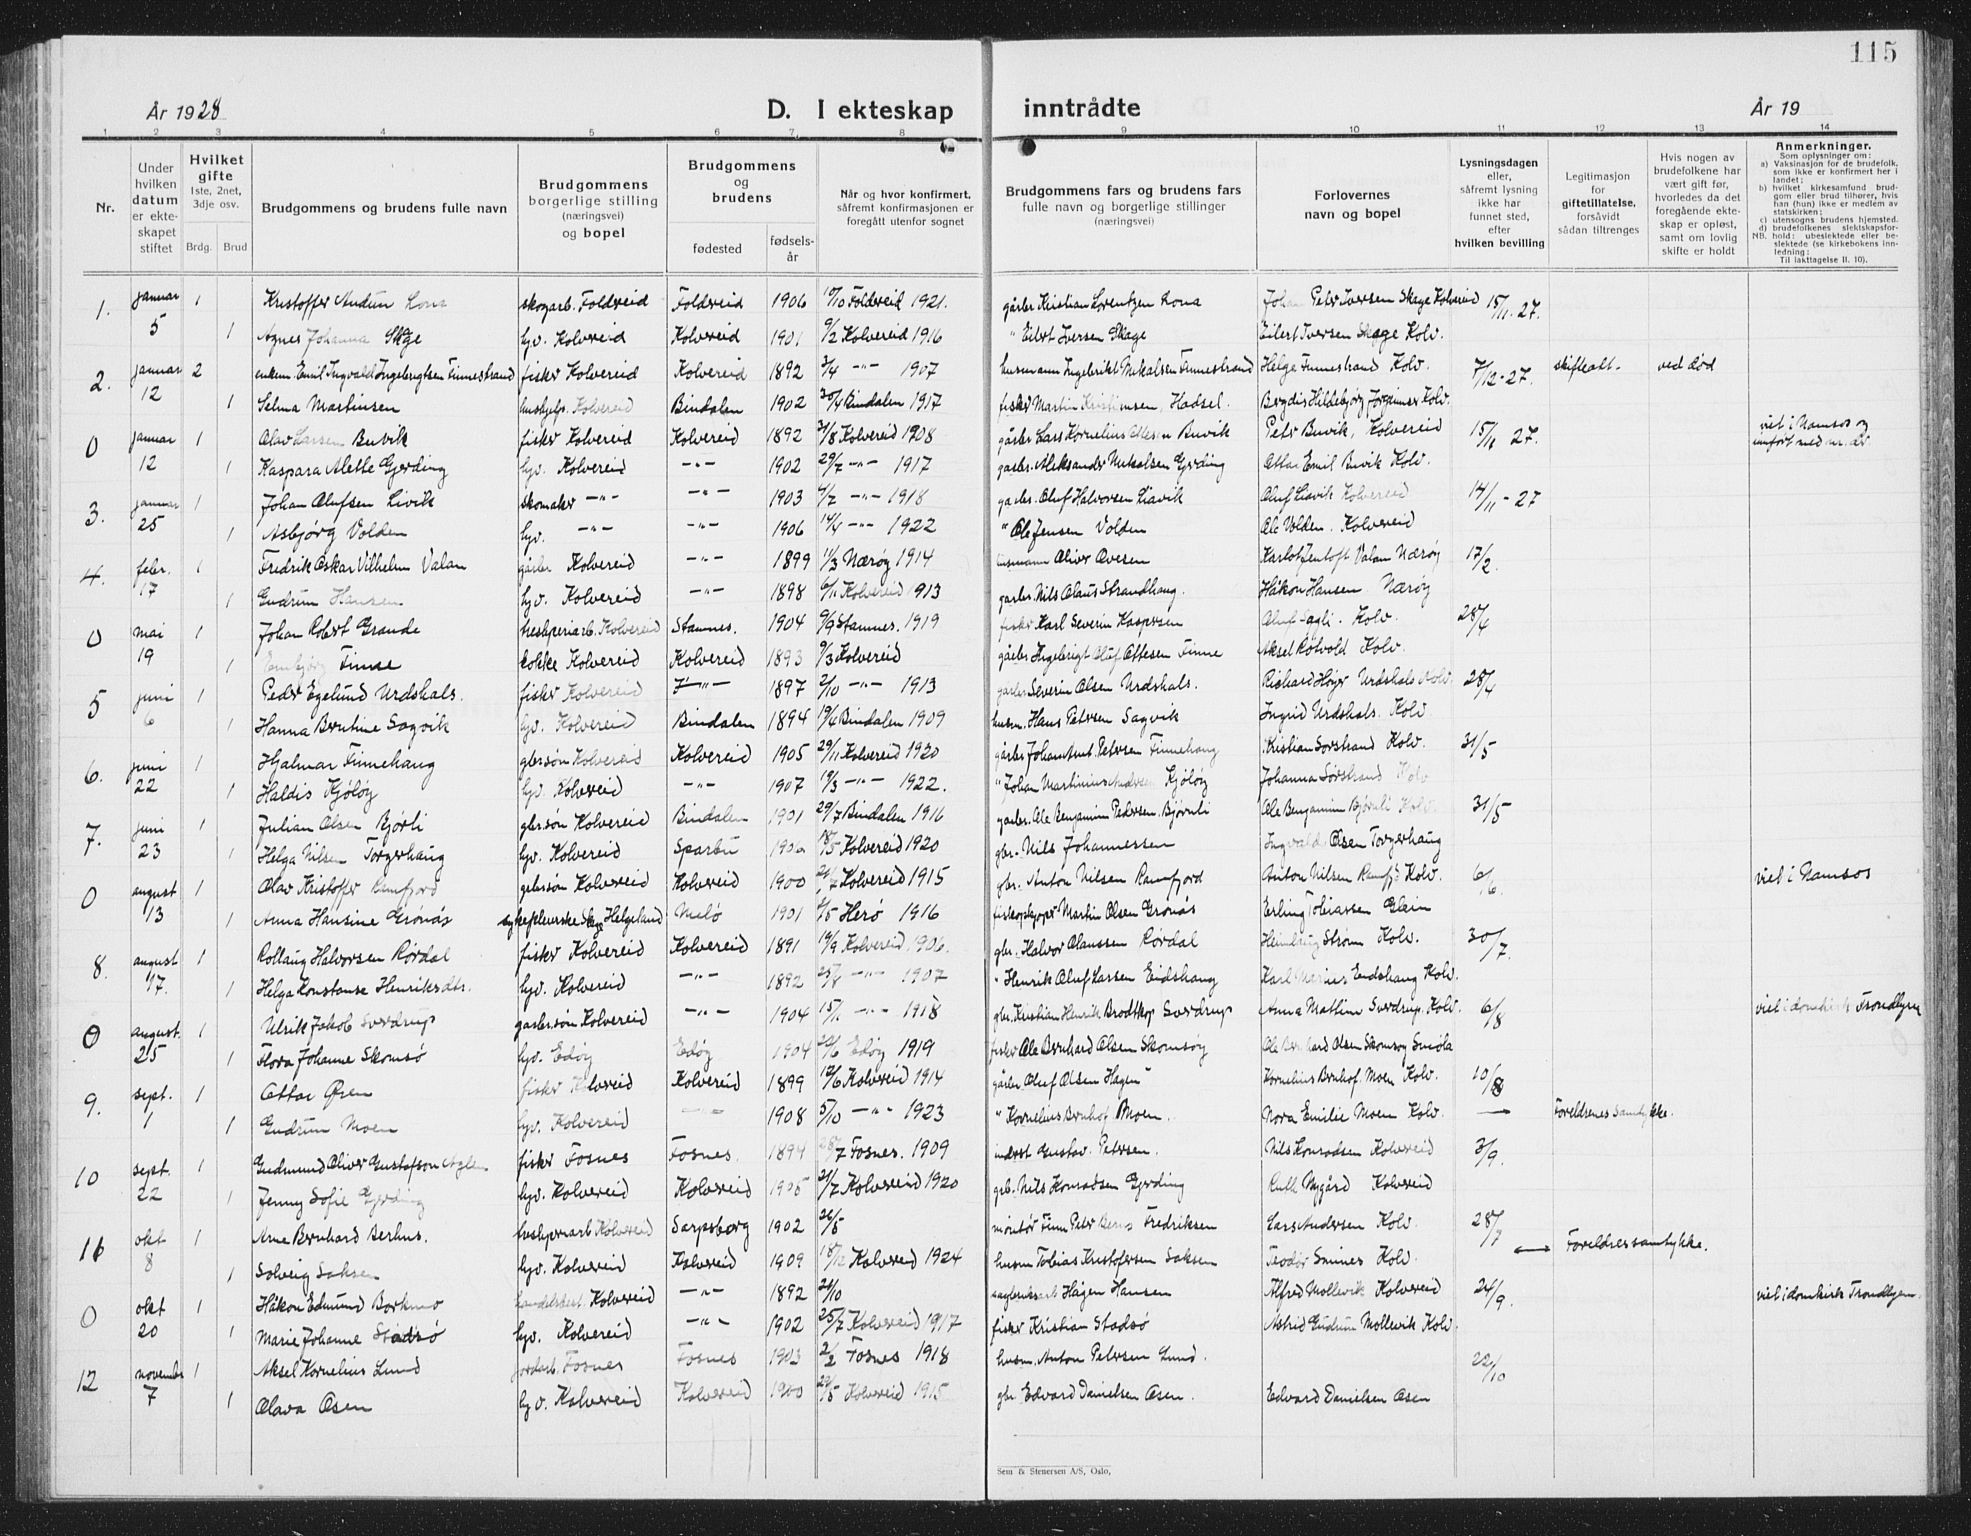 115
År 1928
D. I ekteskap inntrådte
År 19
1 2 3 4 5 6 7 8 9 10 11 12 13 14
Nr.
Under hvilken datum er ekteskapet stiftet
Hvilket gifte 1ste, 2net, 3dje osv.
Brdg. Brud
Brudgommens og brudens fulle navn
Brudgommens borgerlige stilling (næringsvei) og bopel
Brudgommens og brudens
fødested
fødselsår
Når og hvor konfirmert, såfremt konfirmasjonen er foregått utenfor sognet
Brudgommens fars og brudens fars fulle navn og borgerlige stillinger (næringsvei)
Forlovernes navn og bopel
Lysningsdagen eller, såfremt lysning ikke har funnet sted, efter hvilken bevilling
Legitimasjon for giftetillatelse, forsåvidt sådan tiltrenges
Hvis nogen av brudefolkene har vært gift før, hvorledes da det foregående ekteskap er opløst, samt om lovlig skifte er holdt
Anmerkninger.
Som oplysninger om:
a) Vaksinasjon for de brudefolk, som ikke er konfirmert her i landet;
b) hvilket kirkesamfund brudgom eller brud tilhører, hvis han (hun) ikke er medlem av statskirken;
c) utensogns brudens hjemsted.
d) brudefolkenes slektskapsforhold: ubeslektede eller beslektede (se kirkebokens innledning:
NB. Til iakttagelse II. 10).
1. januar 5 1 Kristoffer Audun Lona skogarb. Foldreid Foldreid 1906 10/10 Foldreid 1921. gårbr. Kristian Lorentzen Lona Johan Peter Iversen Skage Kolvereid 15/11-27.
1 Agnes Johanna Skage hv. Kolvereid Kolvereid 1901 9/2 Kolvereid 1916 " Eilert Iversen Skage Eilert Iversen Skage Kolv.
2. januar 12 2 enkem. Emil Ingvald Ingebrigtsen Finnestrand fisker Kolvereid Kolvereid 1892 3/4 -"- 1907 husmann Ingebrikt Mikalsen Finnestrand Helge Finnestrand Kolv. 7/12-27. skifteatt. ved død
1 Selma Martinsen hushjelp. Kolvereid Bindalen 1902 30/4 Bindalen 1917 fisker Martin Kristiansen, Hadsel. Bergdis Hildebjørg Jørginsen Kolv.
0 januar 12 1 Olav Larsen Buvik fisker Kolvereid Kolvereid 1892 31/8 Kolvereid 1908 gårbr. Lars Kornelius Ottesen Buvik Peter Buvik, Kolvereid 15/11 27. viet i Namsos og innført med nr. der
1 Kaspara Alette Gjerding hv. Kolvereid -"- 1902 29/7 -"- 1917 gårbr. Aleksander Mikalsen Gjerding Ottar Emil Buvik Kolv.
3. januar 25 1 Johan Olufsen Livik skomaker -"- -"- 1903 4/7 -"- 1918 gårbr. Oluf Halvorsen Liavik Oluf Liavik Kolvereid 14/11-27
1 Asbjørg Volden hv. -"- -"- 1906 14/4 -"- 1922 " Ole Jensen Volden Ole Volden. Kolvereid
4. febr. 17 1 Fredrik Oskar Vilhelm Valan gårbr. Kolvereid -"- 1899 11/3 Nærøy 1914 husmann Oliver Ovesen Karlot Zentoft Valan Nærøy 17/2
1 Gudrun Hansen hv. Kolvereid -"- 1898 6/11 Kolvereid 1913 gårbr. Nils Olaus Strandhaug. Håkon Hansen Nærøy
0 mai 19 1 Johan Robert Grande treskjeriarb. Kolvereid Stamnes. 1904 9/9 Stamnes. 1919 fisker Karl Severin Kaspersen Oluf Fagli. Kolv. 28/4
1 Finne kokke Kolvereid Kolvereid 1893 9/3 Kolvereid gårbr Ingebrigt Oluf Ottesen Finne Aksel Rotvold Kolv.
5 juni 6 1 Peder Egelund Urdshals. fisker Kolvereid -"- 1897 2/10 -"- 1913 gårbr Severin Olsen Urdshals. Richard Høyer Urdshals Kolv. 28/4
1 Hanna Berntine Sagvik hv. Kolvereid Bindalen 1894 19/6 Bindalen 1909 husm. Hans Petersen Sagvik Ingrid Urdshals. Kolv
6. juni 22 1 Hjalmar Finnehaug gbr.søn Kolvereid Kolvereid 1905 29/11 Kolvereid 1920 gårbr Johan Arnt Petersen Finnehaug Kristian Sørstrand Kolv. 31/5
1 Haldis Kjøløy hv. Kolvereid -"- 1907 19/3 -"- 1922. " Johan Martinius Andersen Kjøløy Johanna Sørstrand Kolv
7. juni 23 1 Julian Olsen Bjørli gbr.søn Kolvereid Bindalen 1901 29/7 Bindalen 1916 gårbr. Ole Benjamin Pedersen Bjørnli Ole Benjamin Bjørnli Kolv. 31/5
1 Helga Nilsen Torgerhaug hv. Kolvereid Sparbu 1906 18/5 Kolvereid 1920 gbr. Nils Johannessen Ingvald Olsen Torgerhaug
0 august 13 1 Olav Kristoffer Ramfjord gbr.søn Kolvereid Kolvereid 1900 Kolvereid 1915 gbr. Anton Nilsen Ramfjord Anton Nilsen Ramfj Kolv. 6/6. viet i Namsos
1 Anna Hansine Grønås sykepleierske Helgeland 1901 Herø 1916 fiskeopkjøper Martin Olsen Grønås Erling Tobiassen Glein
8. august 17. 1 Rollaug Halvorsen Rørdal fisker Kolvereid Kolvereid 1891 19/9 Kolvereid 1906. gbr. Halvor Olaussen Rørdal Strøm Kolv. 30/7.
1 Helga Konstanse Henriksdtr. hv. Kolvereid -"- 1892 25/8 -"- 1907 " Henrik Oluf Larsen Eidshaug Karl Marius Eidshaug Kolv.
0 august. 25 1 Ulrik Jakob Sverdrup gårbr.søn Kolvereid -"- 1904 15/11 -"- 1918 gbr. Kristian Henrik Brodtkop Sverdrup Anna Matline Sverdrup. Kolv. 6/8 viet i domkirk Trondhjem
1 Flora Johanne Skomsø hv. Edøy Edøy 1904 Edøy 1919 fisker Ole Bernhard Olsen Skomsøy Ole Bernhard Olsen Skomsøy Smøla
9. sept. 1 1 Ottar Øren fisker Kolvereid Kolvereid 1899 19/6 Kolvereid 1914 gårbr. Oluf Olsen Hagen Kornelius Bernhof. Moen Kolv. 10/8
1 Gudrun Moen hv. Kolvereid -"- 1908 5/10 -"- 1923 " Kornelius Bernhof Moen. Nora Emilie Moen Kolv. → Foreldrenes samtykke.
10 sept. 22 1 Gudmund Oliver Gustafson fisker Fosnes Fosnes. 1894 28/7 Fosnes. 1909 inderst Gustav. Petersen. Nils Konradsen Kolvereid 3/9.
1 Jenny Sofie Gjerding hv. Kolvereid Kolvereid 1905 21/7 Kolvereid 1920 gbr. Nils Konradsen Gjerding Ruth Nygård Kolvereid
11 okt 8 1 Arne Bernhard Berhus. treskjeriarb Kolvereid Sarpsborg 1902 26/5 montør Finn Peter Fredriksen Lars Andersen Kolv. 28/7
1 Solveig Saksen hv. Kolvereid Kolvereid 1909 18/12 Kolvereid 1924 husm Tobias Kristofersen Saksen Teodor Smines Kolv. ⟷ Foreldres samtykke.
0 okt 20 1 Håkon Edmund Borkmo handelsbest. Kolvereid -"- 1892 21/10 Hagen Hansen Alfred Mollevik Kolvereid 24/9. viet i domkirk Trondhjem.
1 Marie Johanne Stadsø hv. Kolvereid -"- 1902 25/7 Kolvereid 1917 fisker Kristian Stadsø Astrid Gudrun Mollevik Kolv.
12 november 7 1 Aksel Kornelius Lund jordarb. Fosnes Fosnes 1903 2/2 Fosnes 1918 husm. Anton Petersen Lund. 22/10
1 Olava Osen hv. Kolvereid Kolvereid 1900 Kolvereid 1915 gbr Edvard Danielsen Osen. Edvard Danielsen Osen
Sem & Stenersen A/S, Oslo,